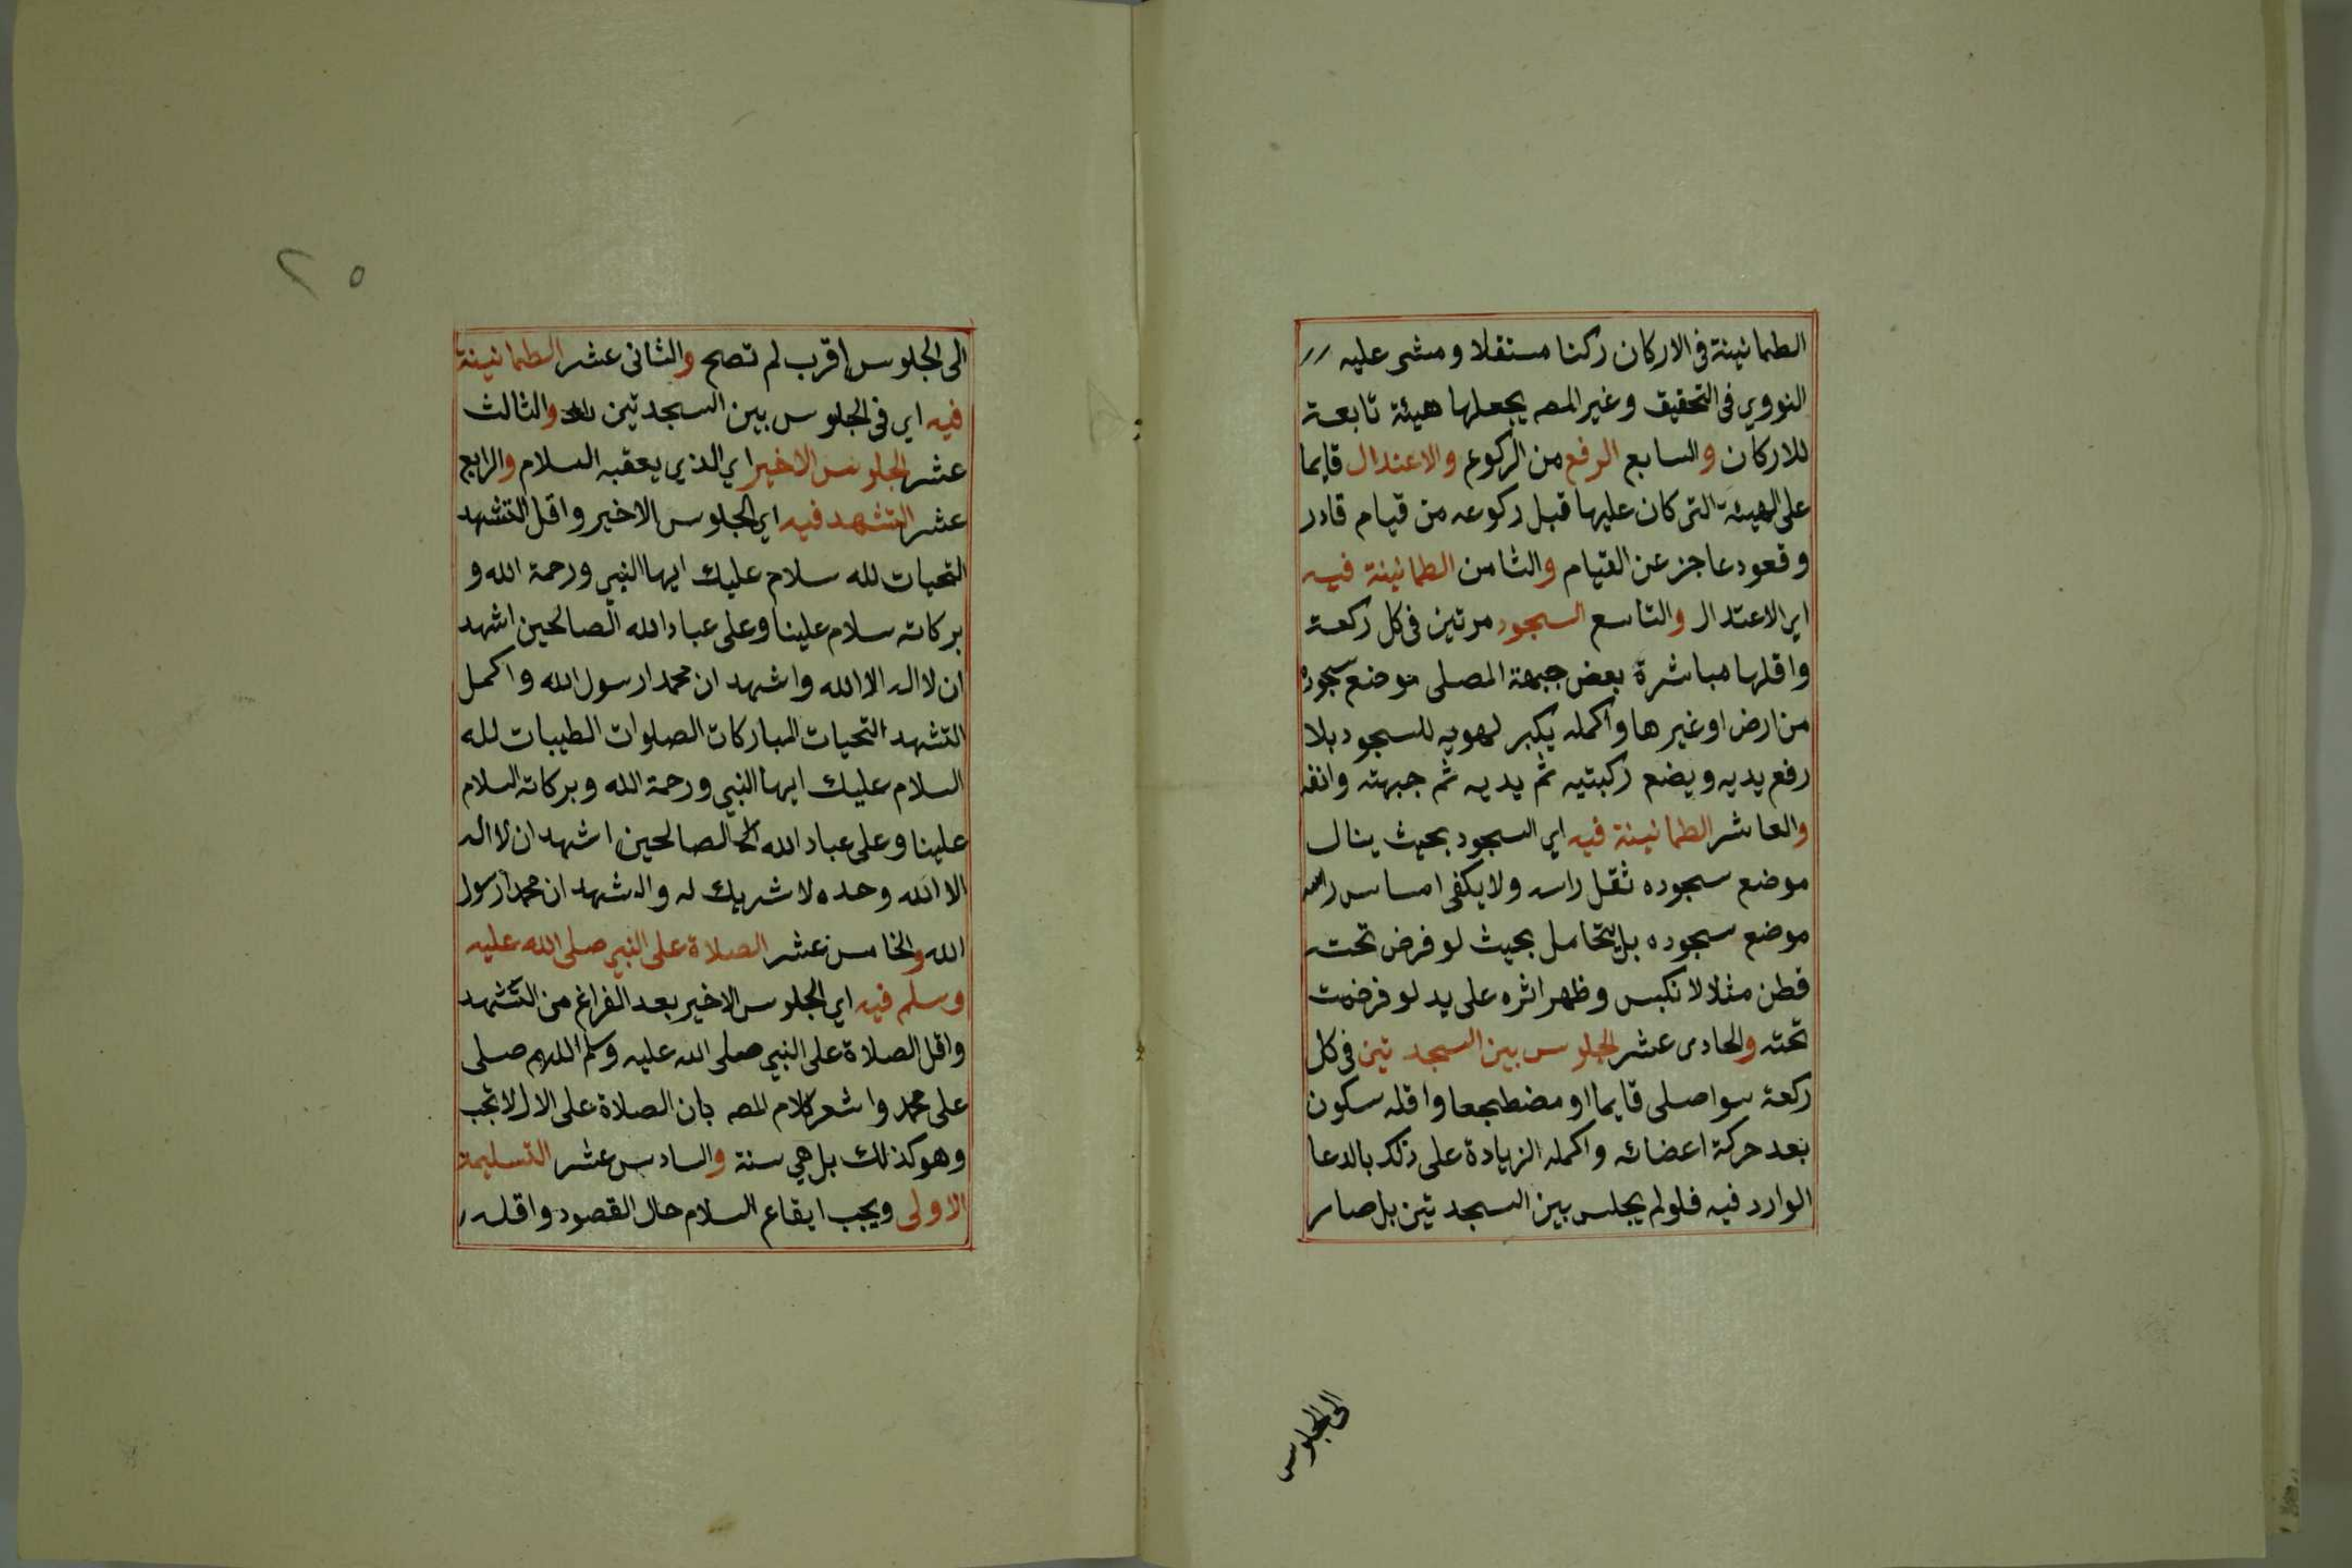 الطمانينة فى الاركان ركنا مستقلا ومشى عليه
النووي فى التحقيق وغير المصه يجعلها هيئة تابعة
للاركان والسابع الرفع من الركوع والاعتدال قايما
على الهيئة التى كان عليها قبل ركوعه من قيام قادر
وقعود عاجز عن القيام والثامن الطمانينة فيه
اي الاعتدال والتاسع السجود مرتين فى كل ركعة
واقلها مباشرة بعض جبهة المصلى موضع سجوده
من ارض اوغيرها واكمله يكبر لهويه للسجود بلا
رفع يديه ويضع ركبتيه ثم يديه ثم جبهته وانفه
والعاشر الطمانينة فيه اي السجود بحيث ينال
موضع سجوده ثقل راسه ولايكفى امساس راسه
موضع سجوده بل يتحامل بحيث لو فرض تحته
قطن مثلا لانكبس وظهر اثره على يد لو فرضت
تحته والحادى عشر الجلوس بين السجدتين فى كل
ركعة سواصلى قايما او مضطجعا واقله سكون
بعد حركة اعضائه واكمله الزيادة على ذلك بالدعا
الوارد فيه فلولم يجلس بين السجدتين بل صار
الى الجلوس
٢٥
الى الجلوس اقرب لم تصح والثانى عشر الطمانينة
فيه اي فى الجلوس بين السجدتين والثالث
عشر الجلوس الاخير اي الذي يعقبه السلام والرابع
عشر التشهد فيه اي الجلوس الاخير واقل التشهد
التحيات لله سلام عليك ايها النبي ورحمة الله و
بركاته سلام علينا وعلى عباد الله الصالحين اشهد
ان لا اله الا الله واشهد ان محمدا رسول الله واكمل
التشهد التحيات المباركات الصلوات الطيبات لله
السلام عليك ايها النبي ورحمة الله وبركاته السلام
علينا وعلى عباد الله الصالحين اشهد ان لا اله
الا الله وحده لا شريك له واشهد ان محمدا رسول
الله والخامس عشر الصلاة على النبي صلى الله عليه
وسلم فيه اي الجلوس الاخير بعد الفراغ من التشهد
واقل الصلاة على النبي صلى الله عليه وسلم اللهم صلى
على محمد واشعر كلام المصه بان الصلاة على الال لا تجب
وهو كذلك بل هي سنة والسادس عشر التسليمة
الاولى ويجب ايقاع السلام حال القصود واقله